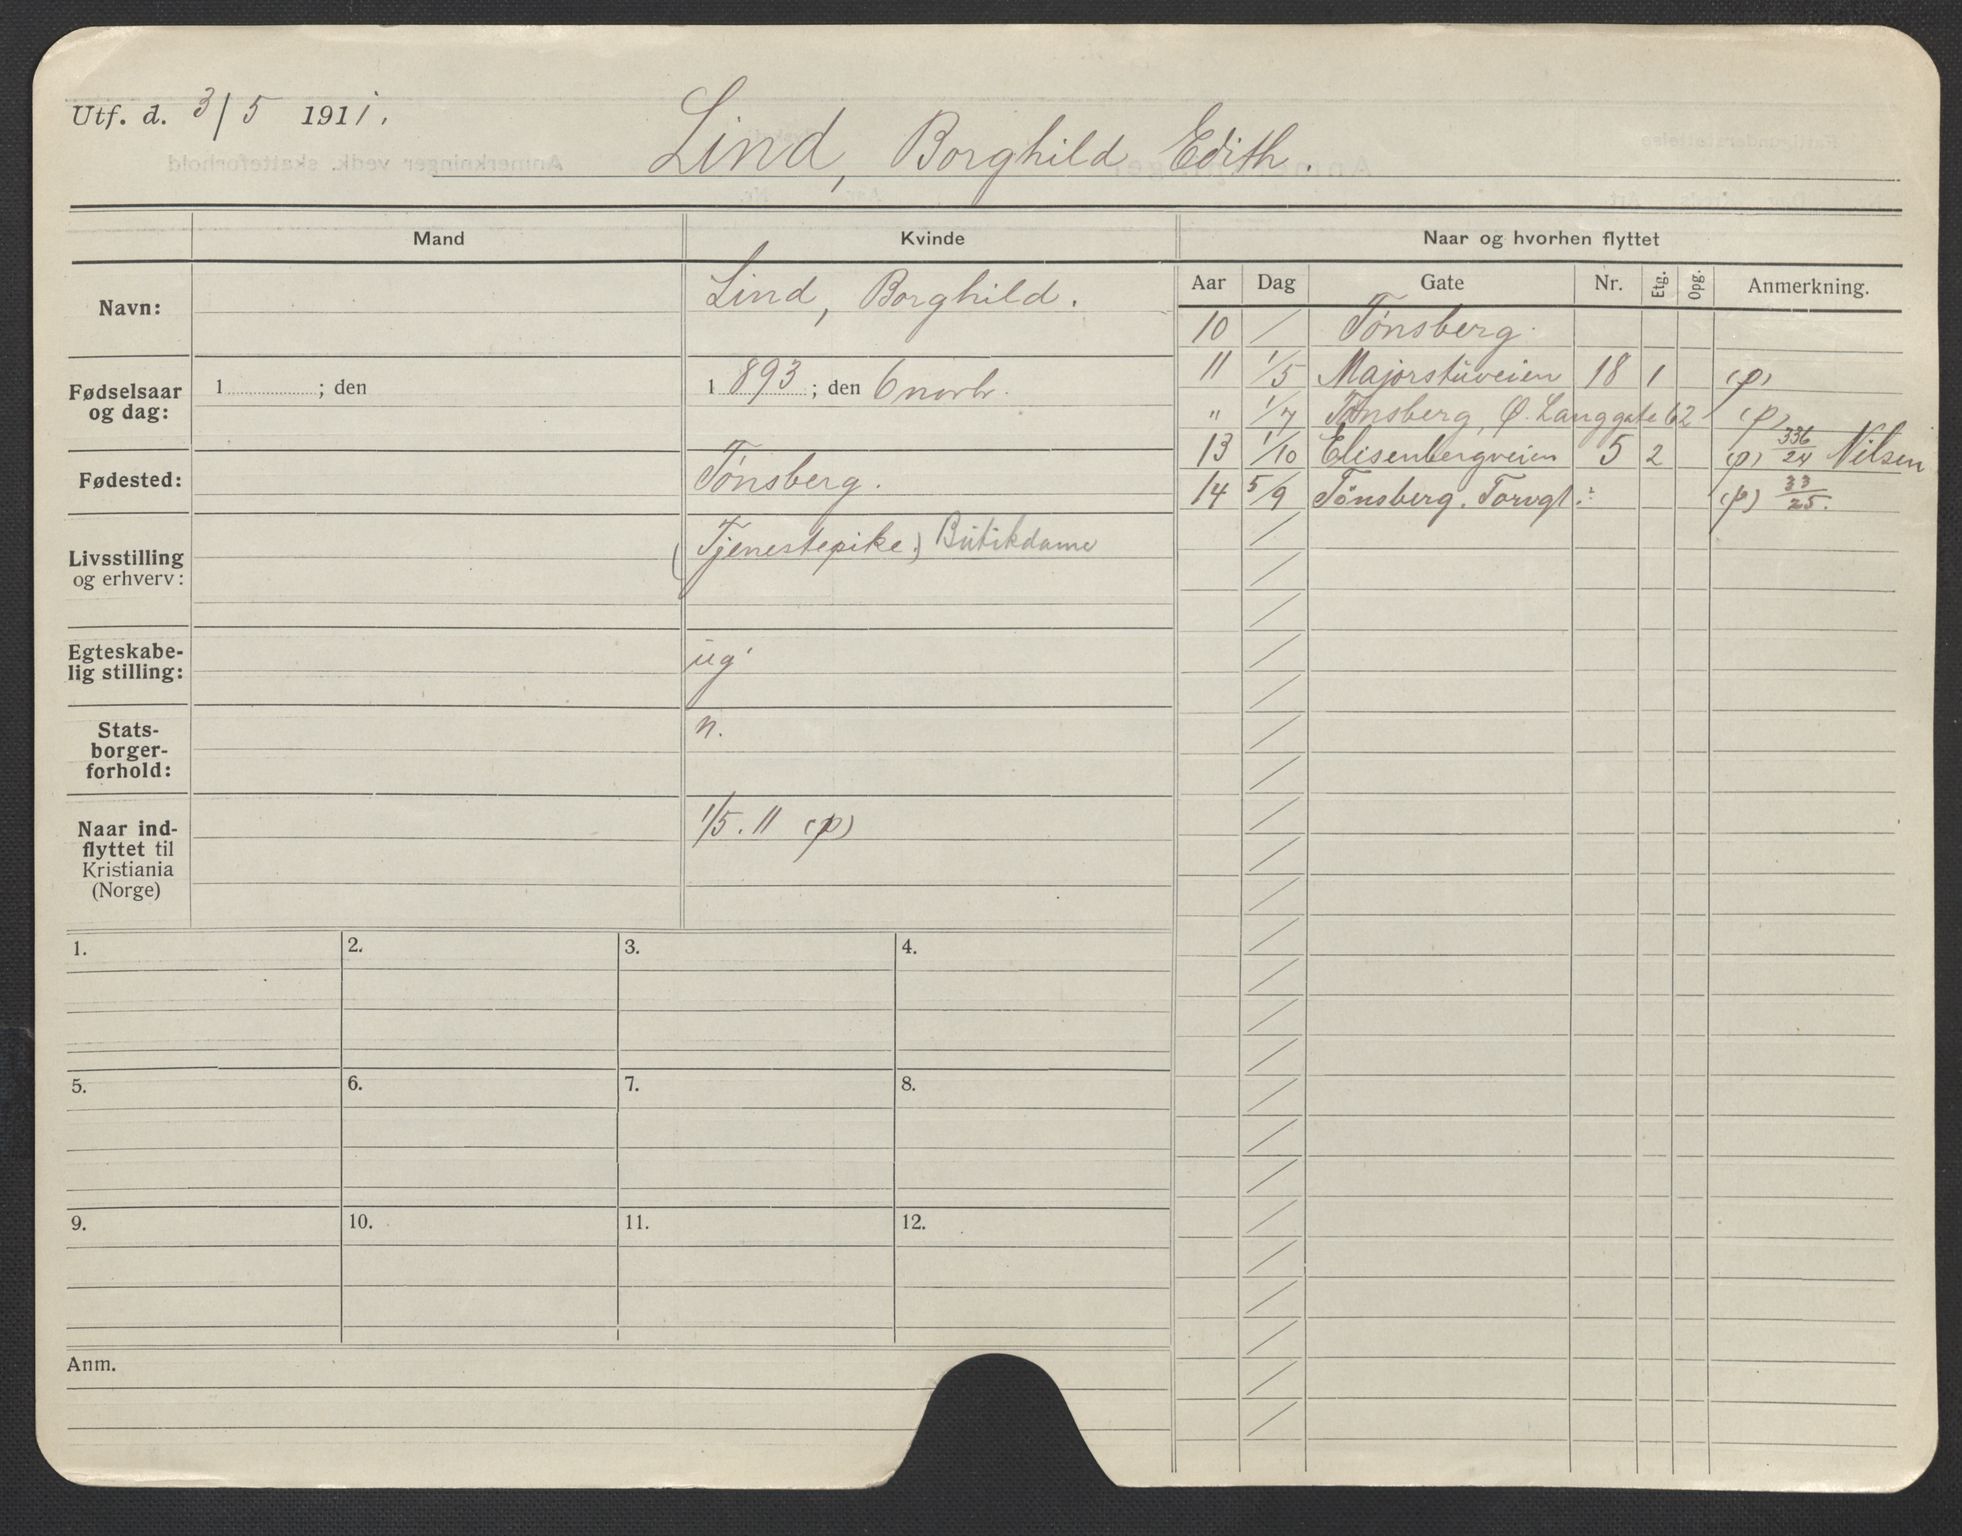 Utf. d. 3/5 1911.
Lind, Borghild Edith.
Mand
Kvinde
Naar og hvorhen flyttet
Navn:
Lind, Borghild.
Fødselsaar og dag:
1 ; den
1893 ; den 6 novbr.
Fødested:
Tønsberg.
Livsstilling og erhverv:
(Tjenestepike.) Butikdame
Egteskabe-
lig stilling:
ug.
Stats-
borger-
forhold:
n.
Naar ind-
flyttet til
Kristiania
(Norge)
1/5. 11 (p)
Aar Dag Gate Nr. Etg. Opg. Anmerkning.
10 / Tønsberg.
11 1/5 Majorstuveien 18 1 (p)
" 1/7 Tønsberg, Ø. Langgate 62 (p)
13 1/10 Elisenbergveien 5 2 (p) 336/24 Nilsen
14 5/9 Tønsberg. Torvgt. (p) 33/25.
1. 2. 3. 4.
5. 6. 7. 8.
9. 10. 11. 12.
Anm.